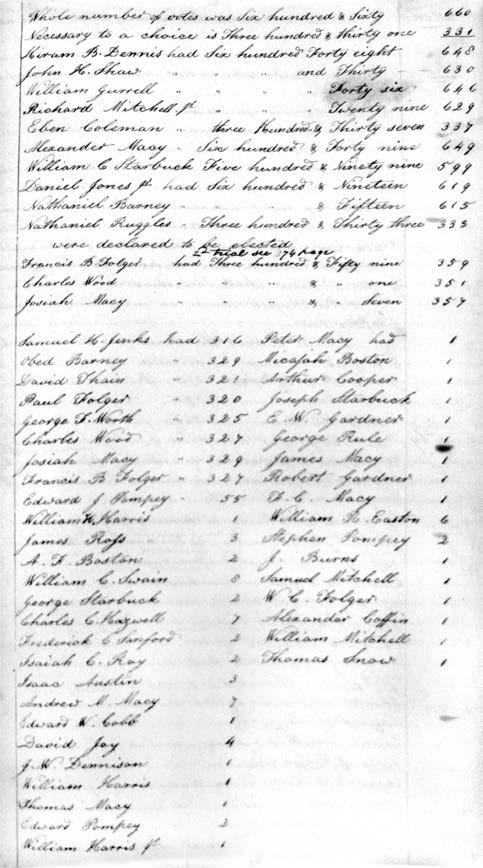 Whole number of votes was Six hundred & Sixty 660
Necessary to a choice is Three hundred & thirty one 331
Hiram B. Dennis had Six hundred Forty eight 648
John H. Shaw " " " and Thirty 630
William Gurrell " " " Forty six 646
Richard Mitchell Jr " " " Twenty nine 629
Eben Coleman " three Hundred & Thirty seven 337
Alexander Macy " Six hundred & Forty nine 649
William C Starbuck Five hundred & Ninety nine 599
Daniel Jones Jr had Six hundred & Nineteen 619
Nathaniel Barney " " " & Fifteen 615
Nathaniel Ruggles " Three hundred & Thirty three 333
were declared to be elected
2d trial see 74 page
Francis B. Folger had Three hundred & Fifty nine 359
Charles Wood " " " & " one 351
Josiah Macy " " " & " Seven 357
Samuel H. Jenks had 316 Peter Macy had 1
Obed Barney " 329 Micajah Boston 1
David Thain " 321 Arthur Cooper 1
Paul Folger " 320 Joseph Starbuck 1
George F. Worth " 325 E. W. Gardner 1
Charles Wood " 327 George Rule 1
Josiah Macy " 329 James Macy 1
Francis B Folger " 327 Robert Gardner 1
Edward J Pompey " 55 F. C. Macy 1
William H. Harris 1 William H. Easton 6
James Ross 3 Stephen Pompey 2
A. F. Boston 2 J. Burns 1
William C. Swain 8 Samuel Mitchell 1
George Starbuck 2 W. C. Folger 1
Charles C. Hazwell 7 Alexander Coffin 1
Frederick C Sanford 2 William Mitchell 1
Isaiah C. Ray 2 Thomas Snow 1
Isaac Austin 3
Andrew M. Macy 7
Edward W. Cobb 1
David Joy 4
J. W. Dennison 1
William Harris 1
Thomas Macy 1
Edward Pompey 2
William Harris Jr 1